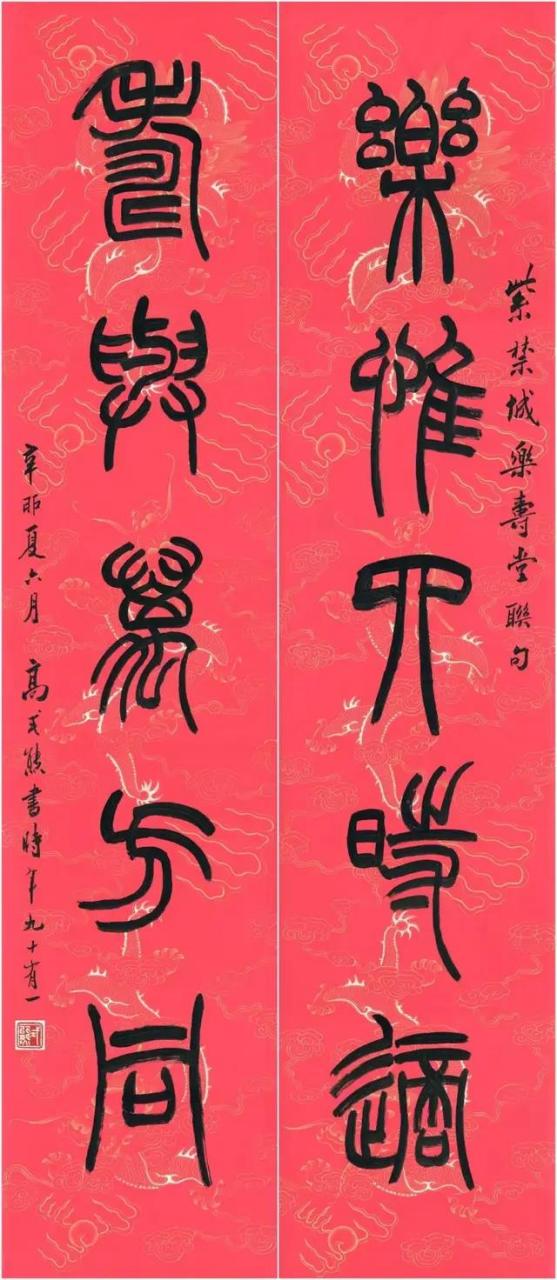 紫禁城樂壽堂聯句
樂惟四時適
壽與萬方同
辛卯夏六月 高式熊書時年九十有一